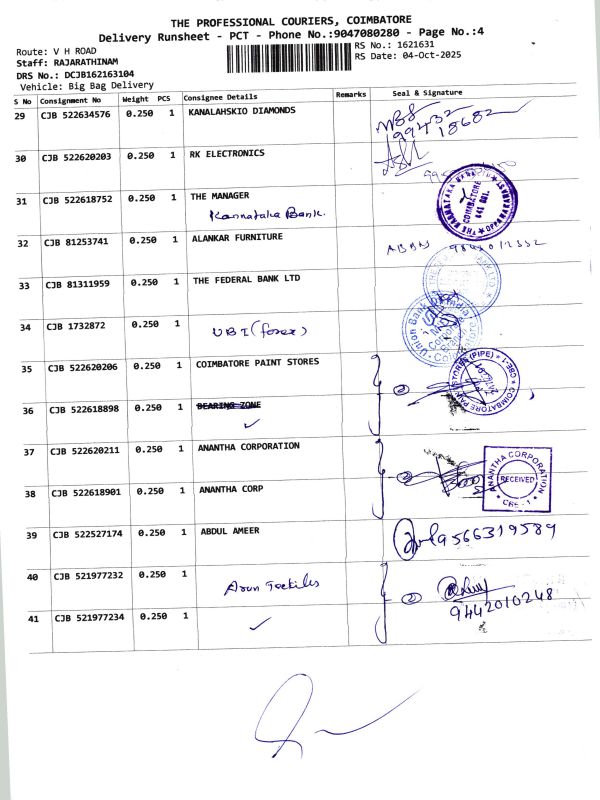 THE PROFESSIONAL COURIERS, COIMBATORE
Delivery Runsheet - PCT - Phone No.:9047080280 - Page No.:4
Route: V H ROAD
RS No.: 1621631
Staff: RAJARATHINAM
RS Date: 04-Oct-2025
DRS No.: DCJB162163104
Vehicle: Big Bag Delivery
S No Consignment No Weight PCS Consignee Details Remarks Seal & Signature
29 CJB 522634576 0.250 1 KANALAHSKIO DIAMONDS
99432
18682
30 CJB 522620203 0.250 1 RK ELECTRONICS
31 CJB 522618752 0.250 1 THE MANAGER
Karnataka Bank.
COIMBATORE
641 001.
32 CJB 81253741 0.250 1 ALANKAR FURNITURE
33 CJB 81311959 0.250 1 THE FEDERAL BANK LTD
34 CJB 1732872 0.250 1 UBI (forex)
Union Bank of India
Coimbatore
35 CJB 522620206 0.250 1 COIMBATORE PAINT STORES
COIMBATORE PAINT STORES (PIPE) ★ CBE-1 ★
2
36 CJB 522618898 0.250 1 BEARING ZONE
✓
37 CJB 522620211 0.250 1 ANANTHA CORPORATION
2
ANANTHA CORPORATION
RECEIVED
CBE - 1
38 CJB 522618901 0.250 1 ANANTHA CORP
39 CJB 522527174 0.250 1 ABDUL AMEER
9566319589
40 CJB 521977232 0.250 1
Arun Textiles
2
9442010248
41 CJB 521977234 0.250 1
✓